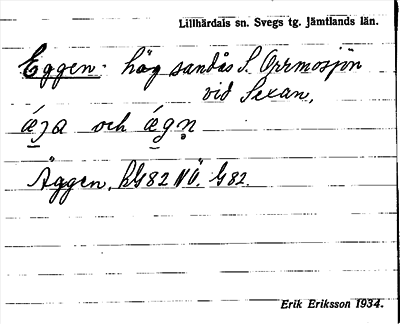 Lillhärdals sn. Svegs tg. Jämtlands län.
Eggen. hög sandås S. Orrmosjön
vid Sexan,
och
Äggen. G82.
Erik Eriksson 1934.